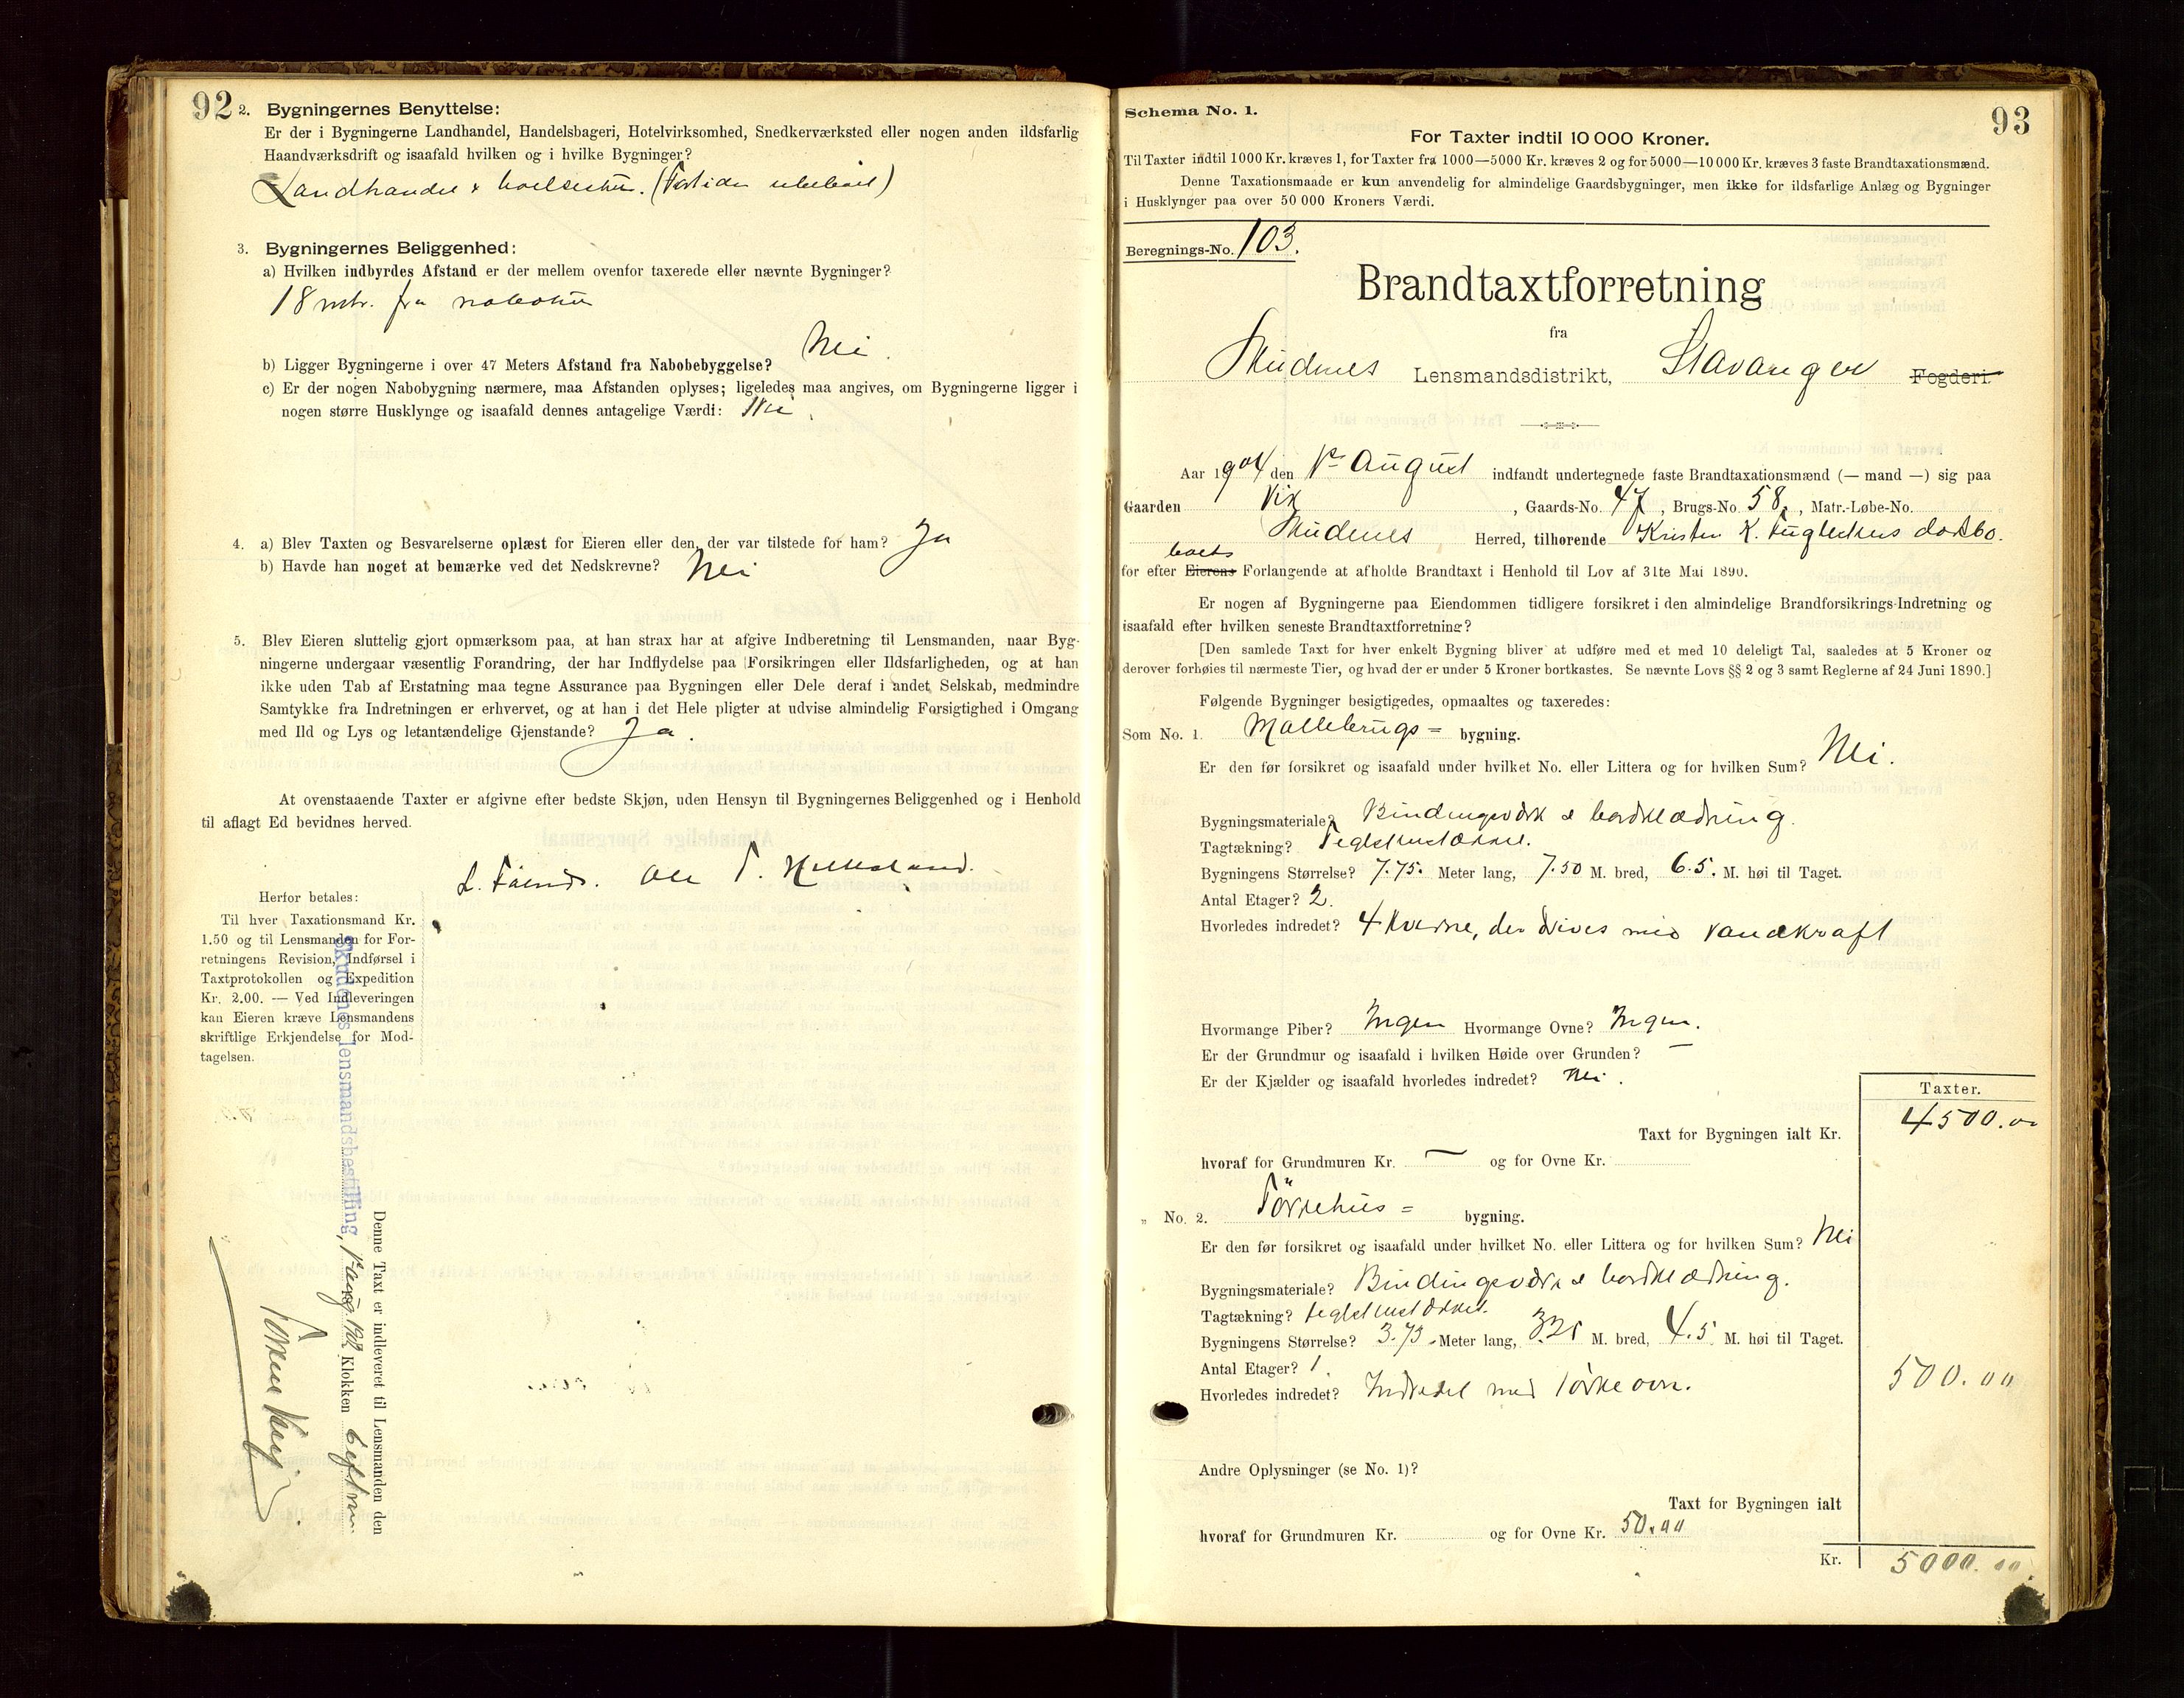 92
2. Bygningernes Benyttelse:
Er der i Bygningerne Landhandel, Handelsbageri, Hotelvirksomhed, Snedkerværksted eller nogen anden ildsfarlig
Haandværksdrift og isaafald hvilken og i hvilke Bygninger?
Landhandel & (For tiden ubeboet)
3. Bygningernes Beliggenhed:
a) Hvilken indbyrdes Afstand er der mellem ovenfor taxerede eller nævnte Bygninger?
18 mtr. fra nabohus
b) Ligger Bygningerne i over 47 Meters Afstand fra Nabobebyggelse? Nei.
c) Er der nogen Nabobygning nærmere, maa Afstanden oplyses; ligeledes maa angives, om Bygningerne ligger i
nogen større Husklynge og isaafald dennes antagelige Værdi: Nei.
4. a) Blev Taxten og Besvarelserne oplæst for Eieren eller den, der var tilstede for ham? Ja
b) Havde han noget at bemærke ved det Nedskrevne? Nei
5. Blev Eieren sluttelig gjort opmærksom paa, at han strax har at afgive Indberetning til Lensmanden, naar Byg-
ningerne undergaar væsentlig Forandring, der har Indflydelse paa Forsikringen eller Ildsfarligheden, og at han
ikke uden Tab af Erstatning maa tegne Assurance paa Bygningen eller Dele deraf i andet Selskab, medmindre
Samtykke fra Indretningen er erhvervet, og at han i det Hele pligter at udvise almindelig Forsigtighed i Omgang
med Ild og Lys og letantændelige Gjenstande? Ja.
At ovenstaaende Taxter er afgivne efter bedste Skjøn, uden Hensyn til Bygningernes Beliggenhed og i Henhold
til aflagt Ed bevidnes herved.
L. Ole T.
Herfor betales:
Til hver Taxationsmand Kr.
1.50 og til Lensmanden for For-
retningens Revision, Indførsel i
Taxtprotokollen og Expedition
Kr. 2.00. — Ved Indleveringen
kan Eieren kræve Lensmandens
skriftlige Erkjendelse for Mod-
tagelsen.
Denne Taxt er indleveret til Lensmanden den
Skudenes lensmandsbestilling, Klokken 6 eftm.
93
Schema No. 1.
For Taxter indtil 10 000 Kroner.
Til Taxter indtil 1000 Kr. kræves 1, for Taxter fra 1000—5000 Kr. kræves 2 og for 5000—10 000 Kr. kræves 3 faste Brandtaxationsmænd.
Denne Taxationsmaade er kun anvendelig for almindelige Gaardsbygninger, men ikke for ildsfarlige Anlæg og Bygninger
i Husklynger paa over 50 000 Kroners Værdi.
Beregnings-No. 103.
Brandtaxtforretning
fra
Skudenes Lensmandsdistrikt, Stavanger Fogderi
Aar 1904 den August indfandt undertegnede faste Brandtaxationsmænd (— mand —) sig paa
Gaarden Vik, Gaards-No. 47, Brugs-No. 58, Matr.-Løbe-No.
Skudenes Herred, tilhørende Kristen K. dødsbo.
boets
for efter Eierens Forlangende at afholde Brandtaxt i Henhold til Lov af 31te Mai 1890.
Er nogen af Bygningerne paa Eiendommen tidligere forsikret i den almindelige Brandforsikrings-Indretning og
isaafald efter hvilken seneste Brandtaxtforretning?
[Den samlede Taxt for hver enkelt Bygning bliver at udføre med et med 10 deleligt Tal, saaledes at 5 Kroner og
derover forhøies til nærmeste Tier, og hvad der er under 5 Kroner bortkastes. Se nævnte Lovs §§ 2 og 3 samt Reglerne af 24 Juni 1890.]
Følgende Bygninger besigtigedes, opmaaltes og taxeredes:
Som No. 1. Møllebrugs= bygning.
Er den før forsikret og isaafald under hvilket No. eller Littera og for hvilken Sum? Nei.
Bygningsmateriale? Bindingsværk & bordklædning.
Tagtækning? Teglstenstækket.
Bygningens Størrelse? 7.75. Meter lang, 7.50 M. bred, 6.5. M. høi til Taget.
Antal Etager? 2.
Hvorledes indredet? 4 kverne, der drives med vandkraft
Hvormange Piber? Ingen Hvormange Ovne? Ingen.
Er der Grundmur og isaafald i hvilken Høide over Grunden? —
Er der Kjælder og isaafald hvorledes indredet? Nei.
Taxter.
Taxt for Bygningen ialt Kr. 4500.00
hvoraf for Grundmuren Kr. — og for Ovne Kr.
„ No. 2. Törrehus= bygning.
Er den før forsikret og isaafald under hvilket No. eller Littera og for hvilken Sum? Nei
Bygningsmateriale? Bindingsværk & bordklædning.
Tagtækning? teglstenstækket.
Bygningens Størrelse? 3.75 Meter lang, 3.25 M. bred, 4.5 M. høi til Taget.
Antal Etager? 1.
Hvorledes indredet? Indredet med Törkeovn. 500.00
Andre Oplysninger (se No. 1)?
Taxt for Bygningen ialt
hvoraf for Grundmuren Kr. og for Ovne Kr. 50.00
Kr. 5000.00.